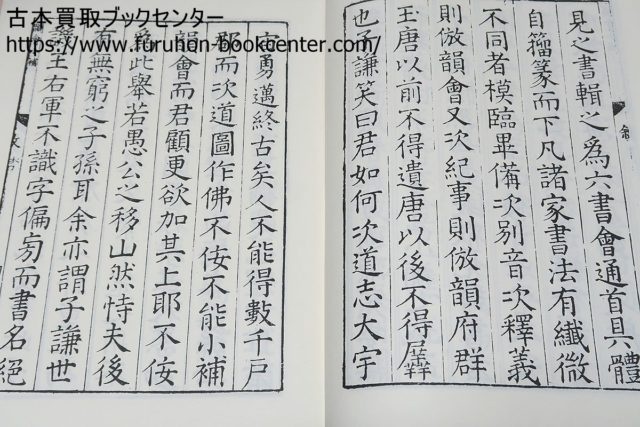 古本買取ブックセンター
https://www.furuhon-bookcenter.com/
見之書輯之為六書會通首具體
自籀篆而下凡諸家書法有纖微
不同者模臨畢備次別音次釋義
則倣韻會又次紀事則倣韻府群
玉唐以前不得遺唐以後不得羼
也子謙笑曰君如何次道志大宇
宙勇邁終古矣人不能得數千戶
郡而次道圖作佛不佞不能小補
韻會而君顧更欲加其上耶不佞
為此舉若愚公之移山然恃夫後
有無窮之子孫耳余亦謂子謙世
譏王右軍不識字偏㫄而書名絕